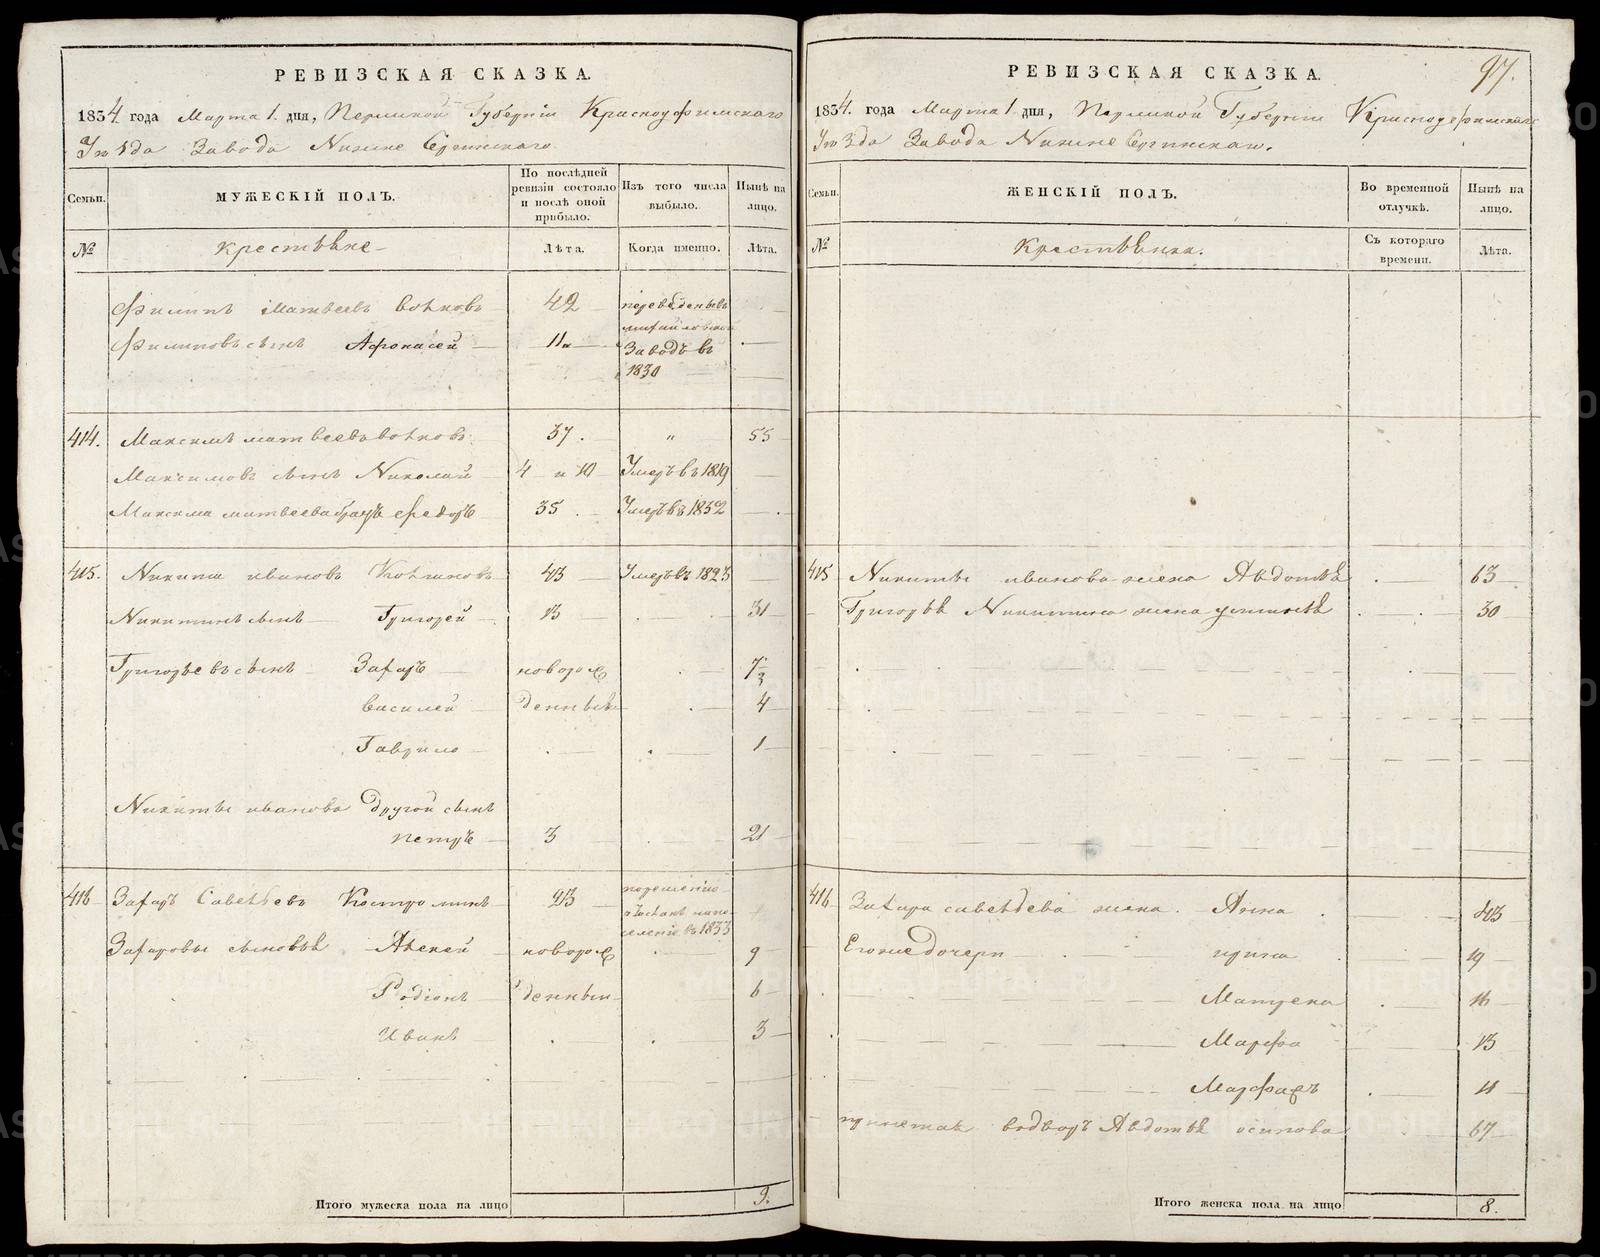 РЕВИЗСКАЯ СКАЗКА.
1834 года Марта 1 дня, Пермской Губернiи Красноуфимскаго
Уѣзда Завода Нижне Сергинскаго
Семьи.
МУЖЕСКIЙ ПОЛЪ.
По послѣдней ревизiи состояло и послѣ оной прибыло.
Изъ того числа выбыло.
Нынѣ на лицо.
№
крестьяне
Лѣта.
Когда именно.
Лѣта.
Филипъ Матвеевъ Волковъ 42 переведены въ
михайловской
Филиповъ сынъ Афонасей 11 Заводъ въ
1830
414. Максимъ матвеевъ волковъ 37. " 55
Максимовъ сынъ Николай 4 и 10 Умеръ въ 1819
Максима матвеева братъ Федоръ 35 Умеръ въ 1832
415. Никита ивановъ 43 Умеръ въ 1823
Никитинъ сынъ Григорей 13 31
Григорьевъ сынъ Захаръ новорож 7 1/3
василей денныя 4
Гаврило 1
Никиты иванова другой сынъ
петръ 3 21
416 Захаръ Савельевъ Костромин 23
селенiе въ 1833
Захаровы сыновья Алексей новорож 9
Родiонъ денныи 6
Иванъ 3
Итого мужеска пола на лицо 9.
97.
РЕВИЗСКАЯ СКАЗКА.
1834. года Марта 1 дня, Пермской Губернiи Красноуфимскаго
Уѣзда Завода Нижне Сергинскаго.
Семьи.
ЖЕНСКIЙ ПОЛЪ.
Во временной отлучкѣ.
Нынѣ на лицо.
№
Крестьянка.
Съ котораго времени.
Лѣта.
415 Никиты иванова жена Авдотья 63
Григорья Никитина жена устинья 30
416 Захара савельева жена. Анна 43
Егоже дочери ирина 19
Матрена 16
Марфа 13
11
водворъ Авдотья осипова 67
Итого женска пола на лицо 8.